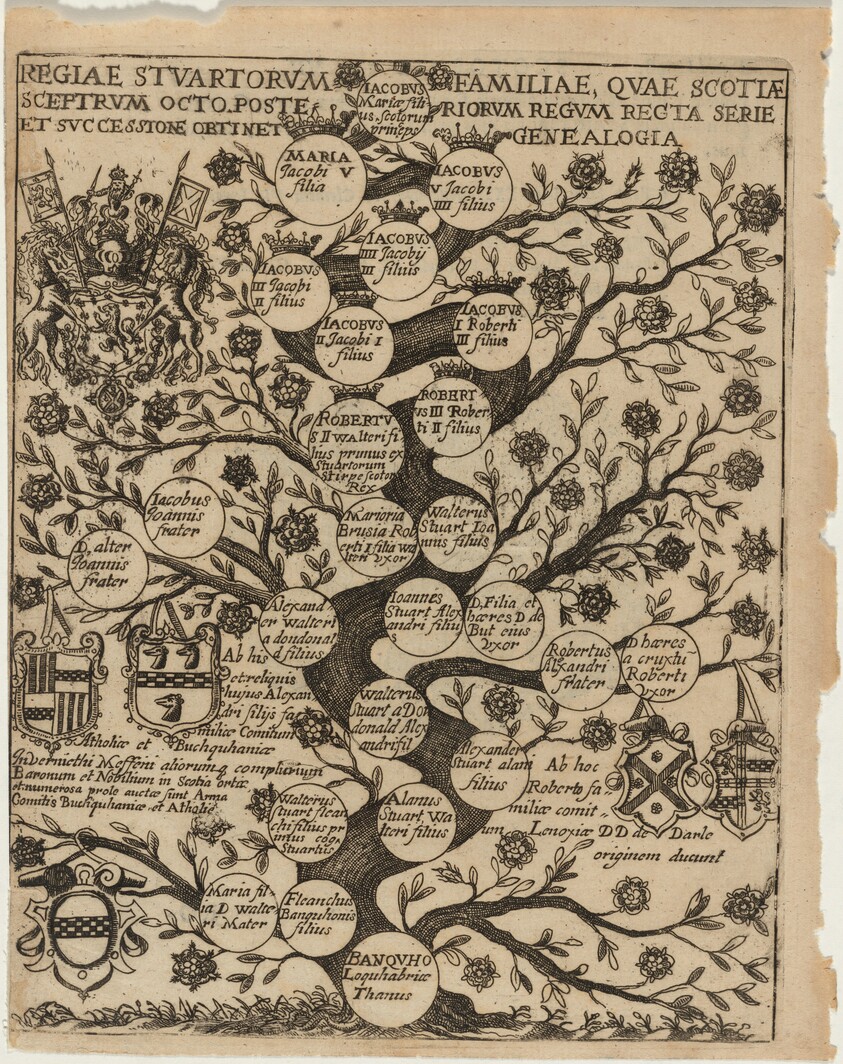 REGIAE STVARTORVM
SCEPTRVM OCTO.POSTE,
ET SVCCESSIONE OBTINET
FAMILIAE, QVAE SCOTIÆ
RIORVM REGVM RECTA SERIE
GENEALOGIA
IACOBVS
Mariæ fili-
us. scotorum
princeps
MARIA
Jacobi V
filia
IACOBVS
V Jacobi
IIII filius
IACOBVS
IIII Jacobij
III filius
IACOBVS
III Jacobi
II filius
IACOBVS
II Jacobi I
filius
IACOBVS
I Roberti
III filius
ROBERT
us III Rober-
ti II filius
ROBERTV
S II walteri fi-
lius primus ex
Stuartorum
Stirpe scotor
Rex
Iacobus
Joannis
frater
D. alter
Joannis
frater
Marioria
Brusia Rob
erti I filia wa
lteri vxor
Walterus
Stuart Ioa
nnis filius
Alexand-
er walteri
a dondonal
d filius
Ioannes
Stuart Alex
andri filiu
s
D, Filia et
hæres D de
But eius
vxor
Robertus
Alexandri
frater
D hæres
a cruxtu-
Roberti
vxor
Ab his
et reliquis
hujus Alexan
dri filijs fa
miliæ Comitum
Atholiæ et Buchquhaniæ
Invermethi Meffeni aliorumq complurium
Baronum et Nobilium in Scotia ortæ
et numerosa prole auctæ sunt Arma
Comitis Buchquhaniæ et Atholiæ
Walterus
Stuart a Don
donald Alex
andri fil
Alexander
Stuart alani
filius
Ab hoc
Roberto fa-
miliæ comit-
um Lenoxiæ DD de Darle
originem ducunt
Walterus
Stuart flean
chi filius pr
imus cog.
Stuartus
Alanus
Stuart, Wa
lteri filius
Maria fil-
ia D walte-
ri Mater
Fleanchus
Banquhonis
filius
BANQVHO
Loquhabriæ
Thanus